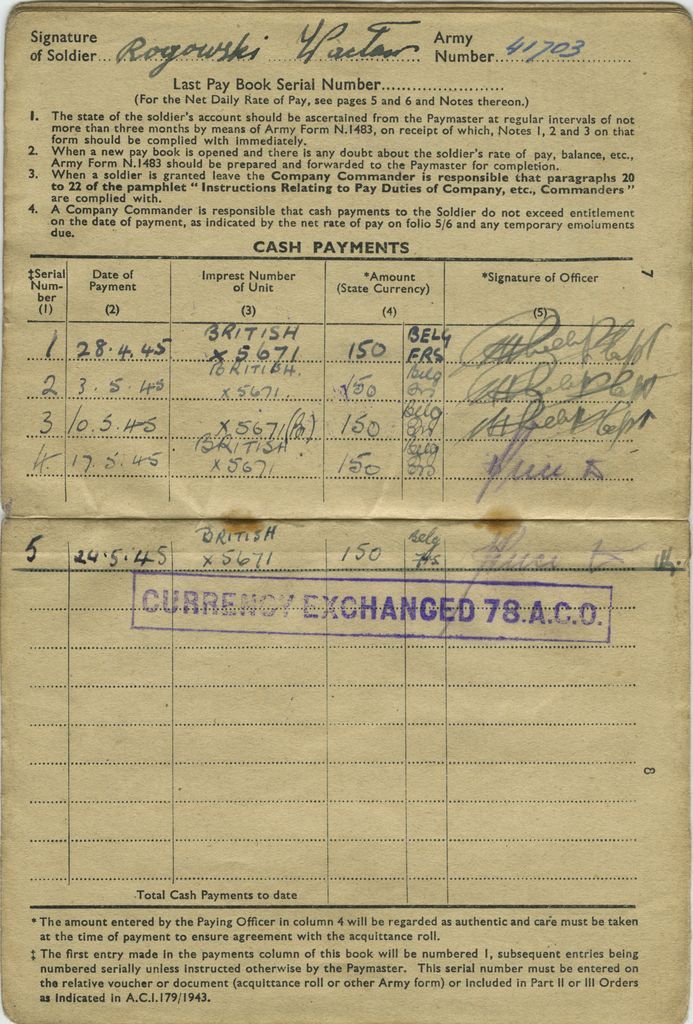 Signature
of Soldier... Rogowski Wacław Army
Number... 41703
Last Pay Book Serial Number........................
(For the Net Daily Rate of Pay, see pages 5 and 6 and Notes thereon.)
1. The state of the soldier's account should be ascertained from the Paymaster at regular intervals of not
more than three months by means of Army Form N.1483, on receipt of which, Notes 1, 2 and 3 on that
form should be complied with immediately.
2. When a new pay book is opened and there is any doubt about the soldier's rate of pay, balance, etc.,
Army Form N.1483 should be prepared and forwarded to the Paymaster for completion.
3. When a soldier is granted leave the Company Commander is responsible that paragraphs 20
to 22 of the pamphlet "Instructions Relating to Pay Duties of Company, etc., Commanders"
are complied with.
4. A Company Commander is responsible that cash payments to the Soldier do not exceed entitlement
on the date of payment, as indicated by the net rate of pay on folio 5/6 and any temporary emoluments
due.
CASH PAYMENTS
‡Serial Number (1) Date of Payment (2) Imprest Number of Unit (3) *Amount (State Currency) (4) *Signature of Officer (5)
7
1 28.4.45 BRITISH X5671 150 BELG FRS
2 3.5.45 BRITISH. X5671. 150 Belg
3 10.5.45 X5671 (Br) 150 Belg
4 17.5.45 BRITISH X5671 150 Belg
5 24.5.45 BRITISH X5671 150 Belg frs
CURRENCY EXCHANGED 78.A.C.O.
8
Total Cash Payments to date
* The amount entered by the Paying Officer in column 4 will be regarded as authentic and care must be taken
at the time of payment to ensure agreement with the acquittance roll.
‡ The first entry made in the payments column of this book will be numbered 1, subsequent entries being
numbered serially unless instructed otherwise by the Paymaster. This serial number must be entered on
the relative voucher or document (acquittance roll or other Army form) or included in Part II or III Orders
as indicated in A.C.I.179/1943.